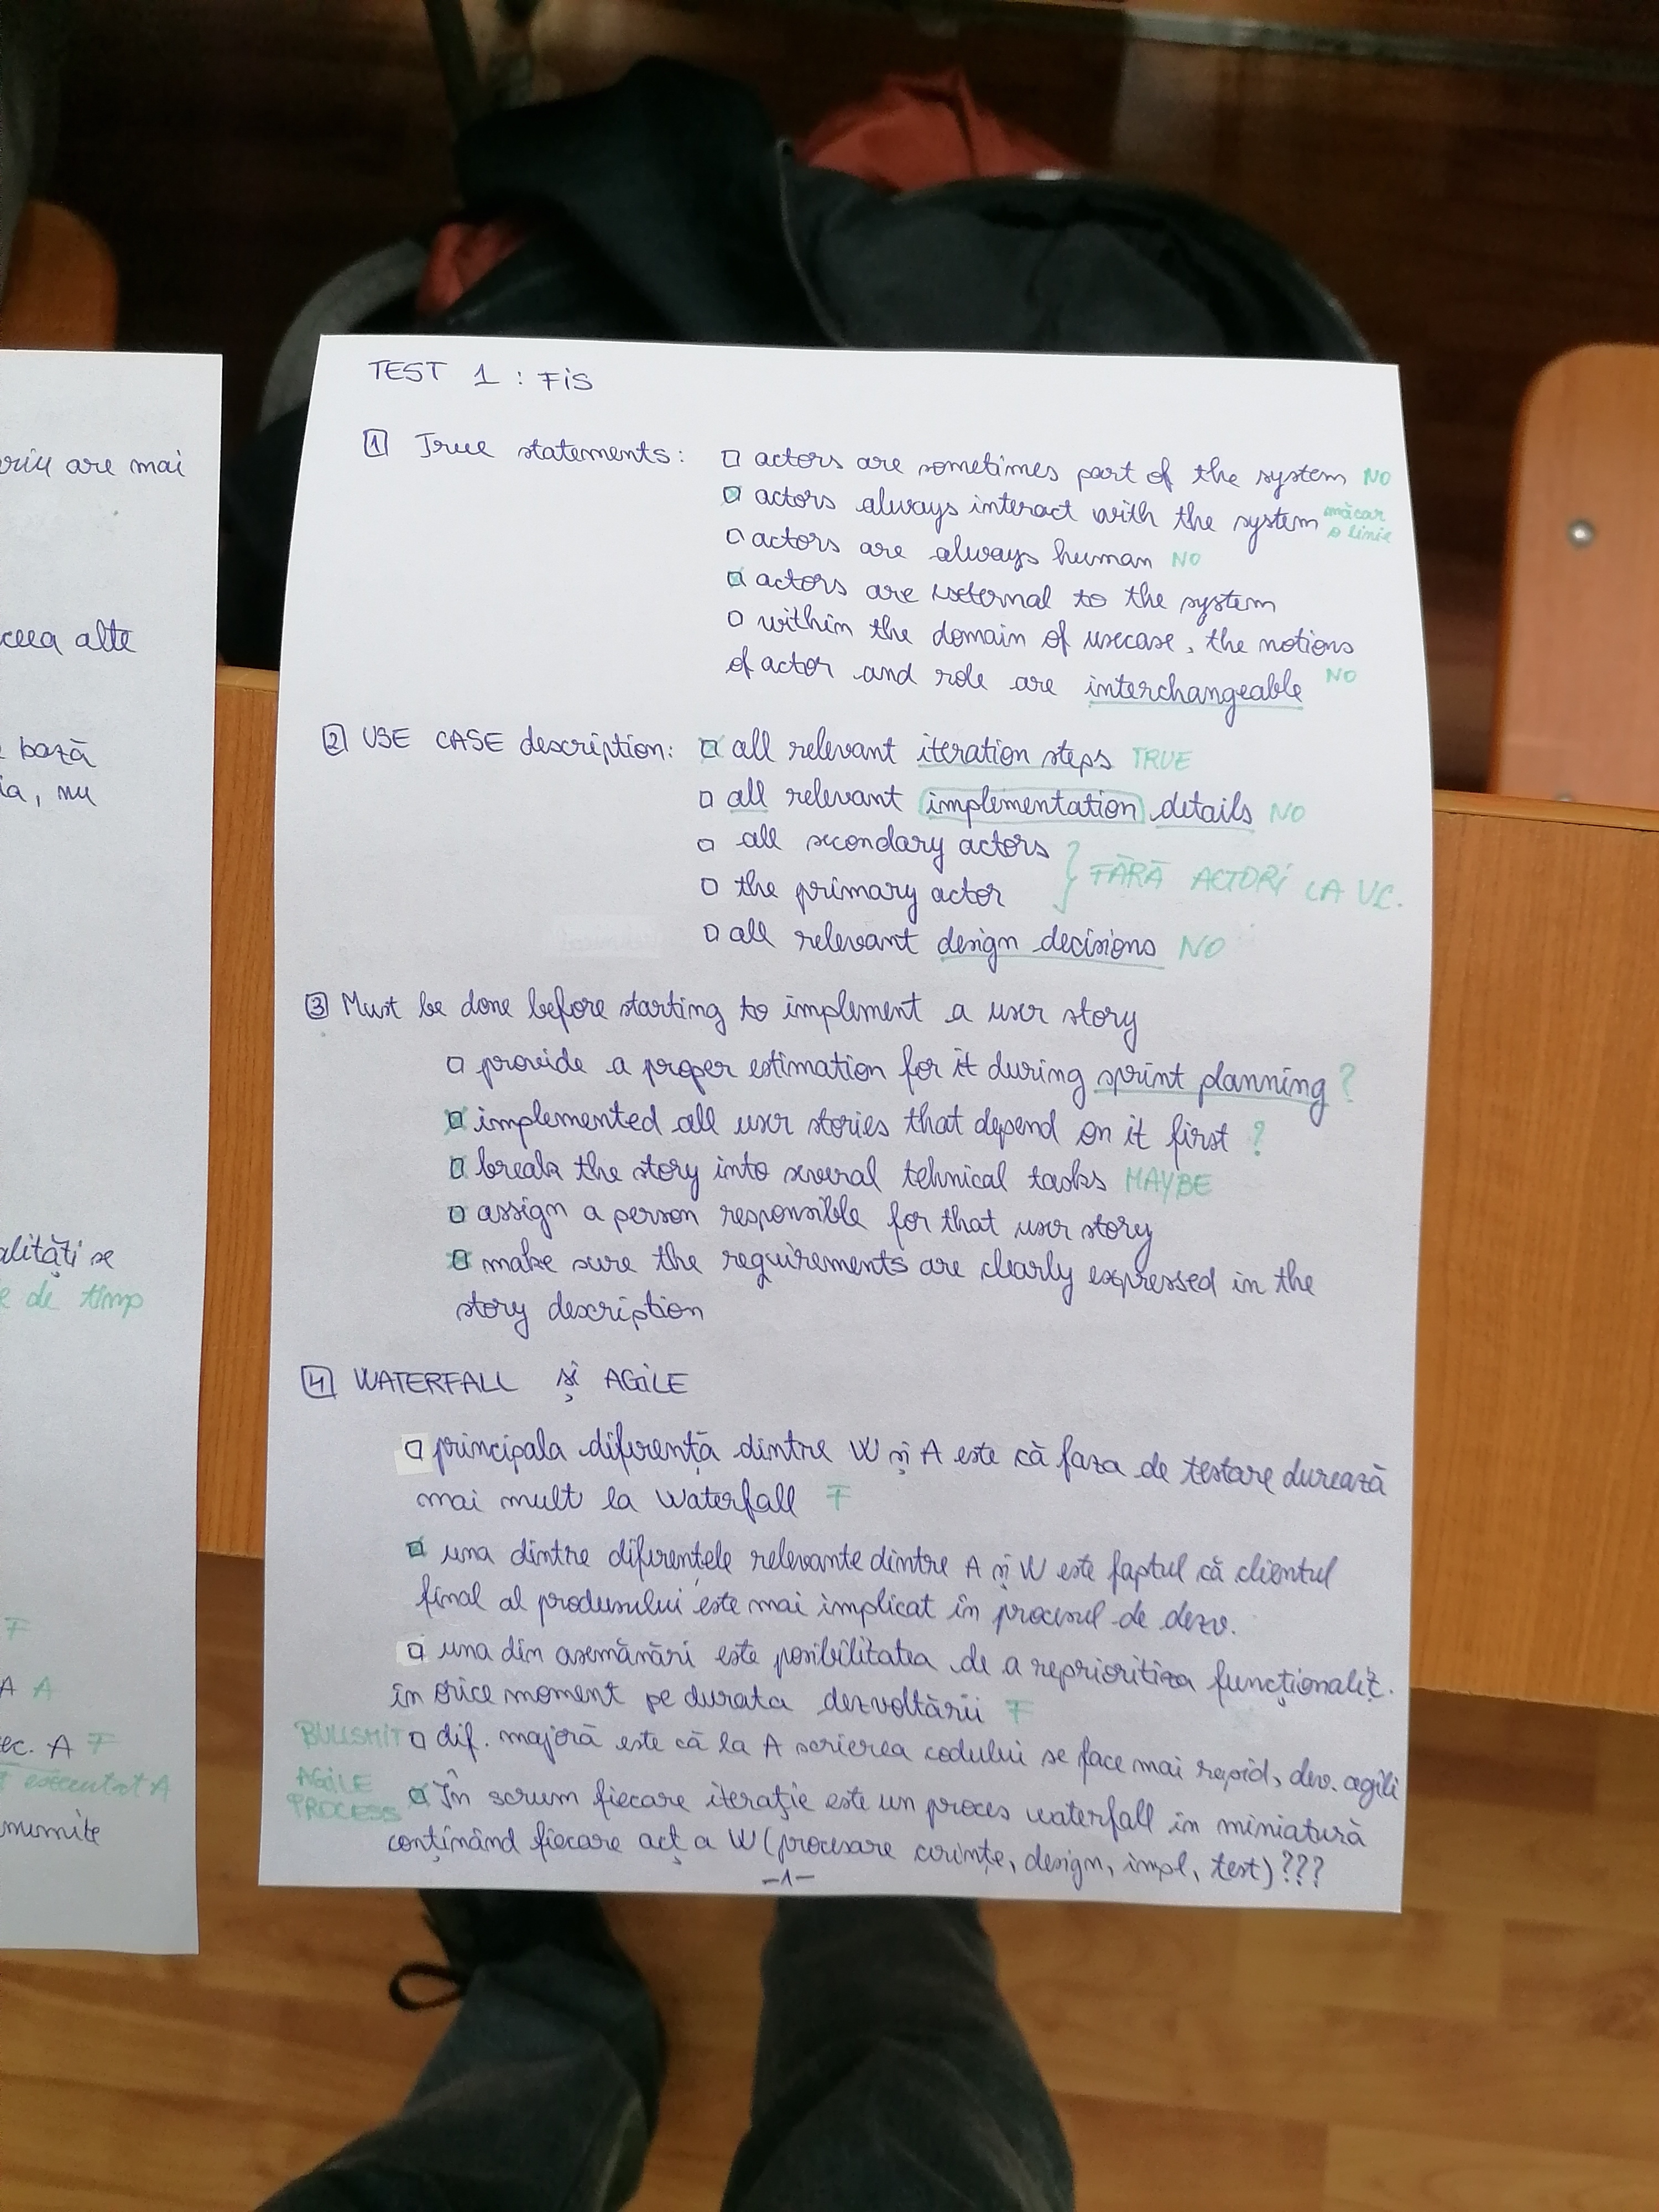 TEST 1 : FiS
1 True statements: □ actors are sometimes part of the system NO
□ actors always interact with the system măcar o linie
□ actors are always human NO
□ actors are external to the system
□ within the domain of usecase, the notions
of actor and role are interchangeable NO
2 USE CASE description: □ all relevant iteration steps TRUE
□ all relevant implementation details NO
□ all secondary actors
□ the primary actor } FĂRĂ ACTORI LA UC.
□ all relevant design decisions NO
3 Must be done before starting to implement a user story
□ provide a proper estimation for it during sprint planning ?
□ implemented all user stories that depend on it first ?
□ break the story into several tehnical tasks MAYBE
□ assign a person responsible for that user story
□ make sure the requirements are clearly expressed in the
story description
4 WATERFALL și AGiLE
□ principala diferență dintre W și A este că faza de testare durează
mai mult la Waterfall F
□ una dintre diferențele relevante dintre A și W este faptul că clientul
final al produsului este mai implicat în procesul de dezv.
□ una din asemănări este posibilitatea de a reprioritiza funcționaliț.
în orice moment pe durata dezvoltării F
BULLSHIT □ dif. majoră este că la A scrierea codului se face mai rapid, dev. agili
AGiLE PROCESS □ În scrum fiecare iterație este un proces waterfall in miniatură
conținând fiecare act a W (procesare cerințe, design, impl, test) ???
-1-
are mai
alte
bază
, nu
se
de timp
F
A A
ec. A F
executat A
numite